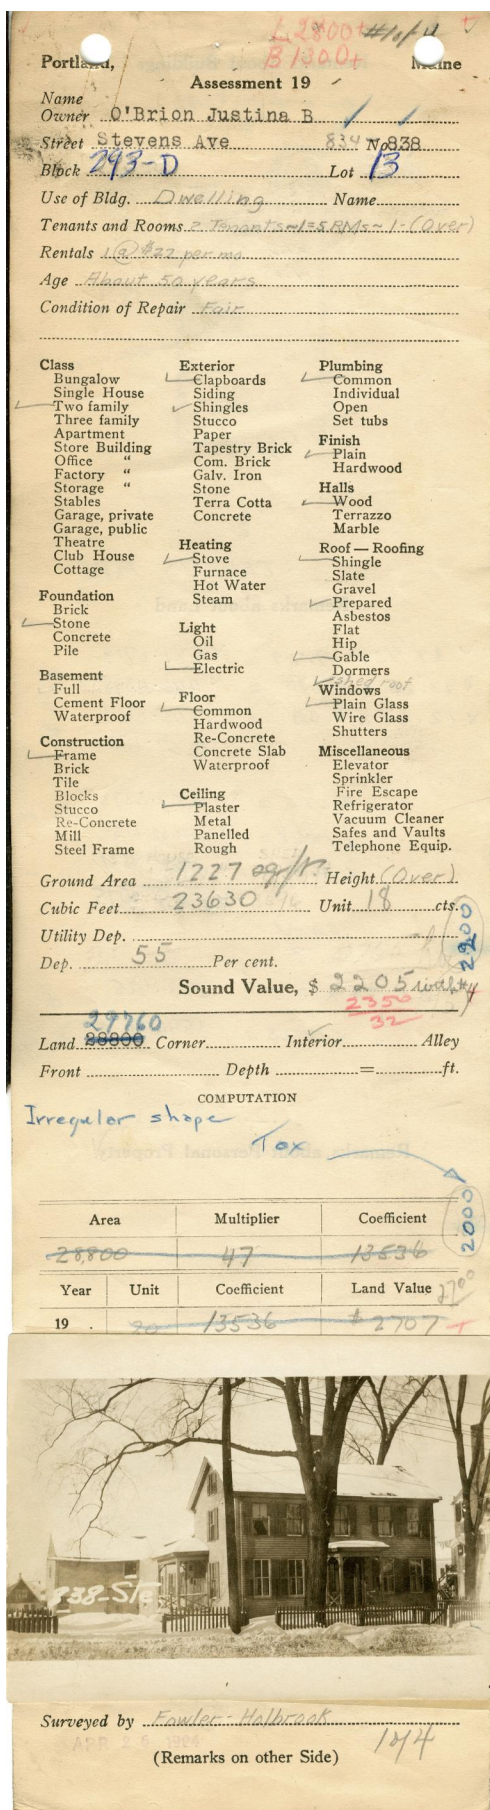 L 2800+ #1 of 4 +
B 1300+
Portland, Maine
Assessment 19
Name
Owner O'Brion Justina B
Street Stevens Ave 834- No 838
Block 293-D Lot 13
Use of Bldg. Dwelling Name
Tenants and Rooms 2 Tenants ~ 1=5 RMs ~ 1-(Over)
Rentals 1 @ $22 per mo
Age About 50 years
Condition of Repair Fair
Class
Bungalow
Single House
Two family
Three family
Apartment
Store Building
Office "
Factory "
Storage "
Stables
Garage, private
Garage, public
Theatre
Club House
Cottage
Foundation
Brick
Stone
Concrete
Pile
Basement
Full
Cement Floor
Waterproof
Construction
Frame
Brick
Tile
Blocks
Stucco
Re-Concrete
Mill
Steel Frame
Exterior
Clapboards
Siding
Shingles
Stucco
Paper
Tapestry Brick
Com. Brick
Galv. Iron
Stone
Terra Cotta
Concrete
Heating
Stove
Furnace
Hot Water
Steam
Light
Oil
Gas
Electric
Floor
Common
Hardwood
Re-Concrete
Concrete Slab
Waterproof
Ceiling
Plaster
Metal
Panelled
Rough
Plumbing
Common
Individual
Open
Set tubs
Finish
Plain
Hardwood
Halls
Wood
Terrazzo
Marble
Roof — Roofing
Shingle
Slate
Gravel
Prepared
Asbestos
Flat
Hip
Gable
Dormers
shed roof
Windows
Plain Glass
Wire Glass
Shutters
Miscellaneous
Elevator
Sprinkler
Fire Escape
Refrigerator
Vacuum Cleaner
Safes and Vaults
Telephone Equip.
Ground Area 1227 sq/ft. Height (Over)
Cubic Feet 23630 Unit 18 cts.
Utility Dep.
Dep. 55 Per cent.
Sound Value, $ 2205 with #4
2350
32
29760
Land 28800 Corner Interior Alley
Front Depth = ft.
COMPUTATION
Irregular shape
Tax
2000
Area Multiplier Coefficient
28,800 47 13536
Year Unit Coefficient Land Value 2700
19 20 13536 $ 2707 +
838-Ste
Surveyed by Fowler-Holbrook
APR 26 1924
(Remarks on other Side) 1 of 4